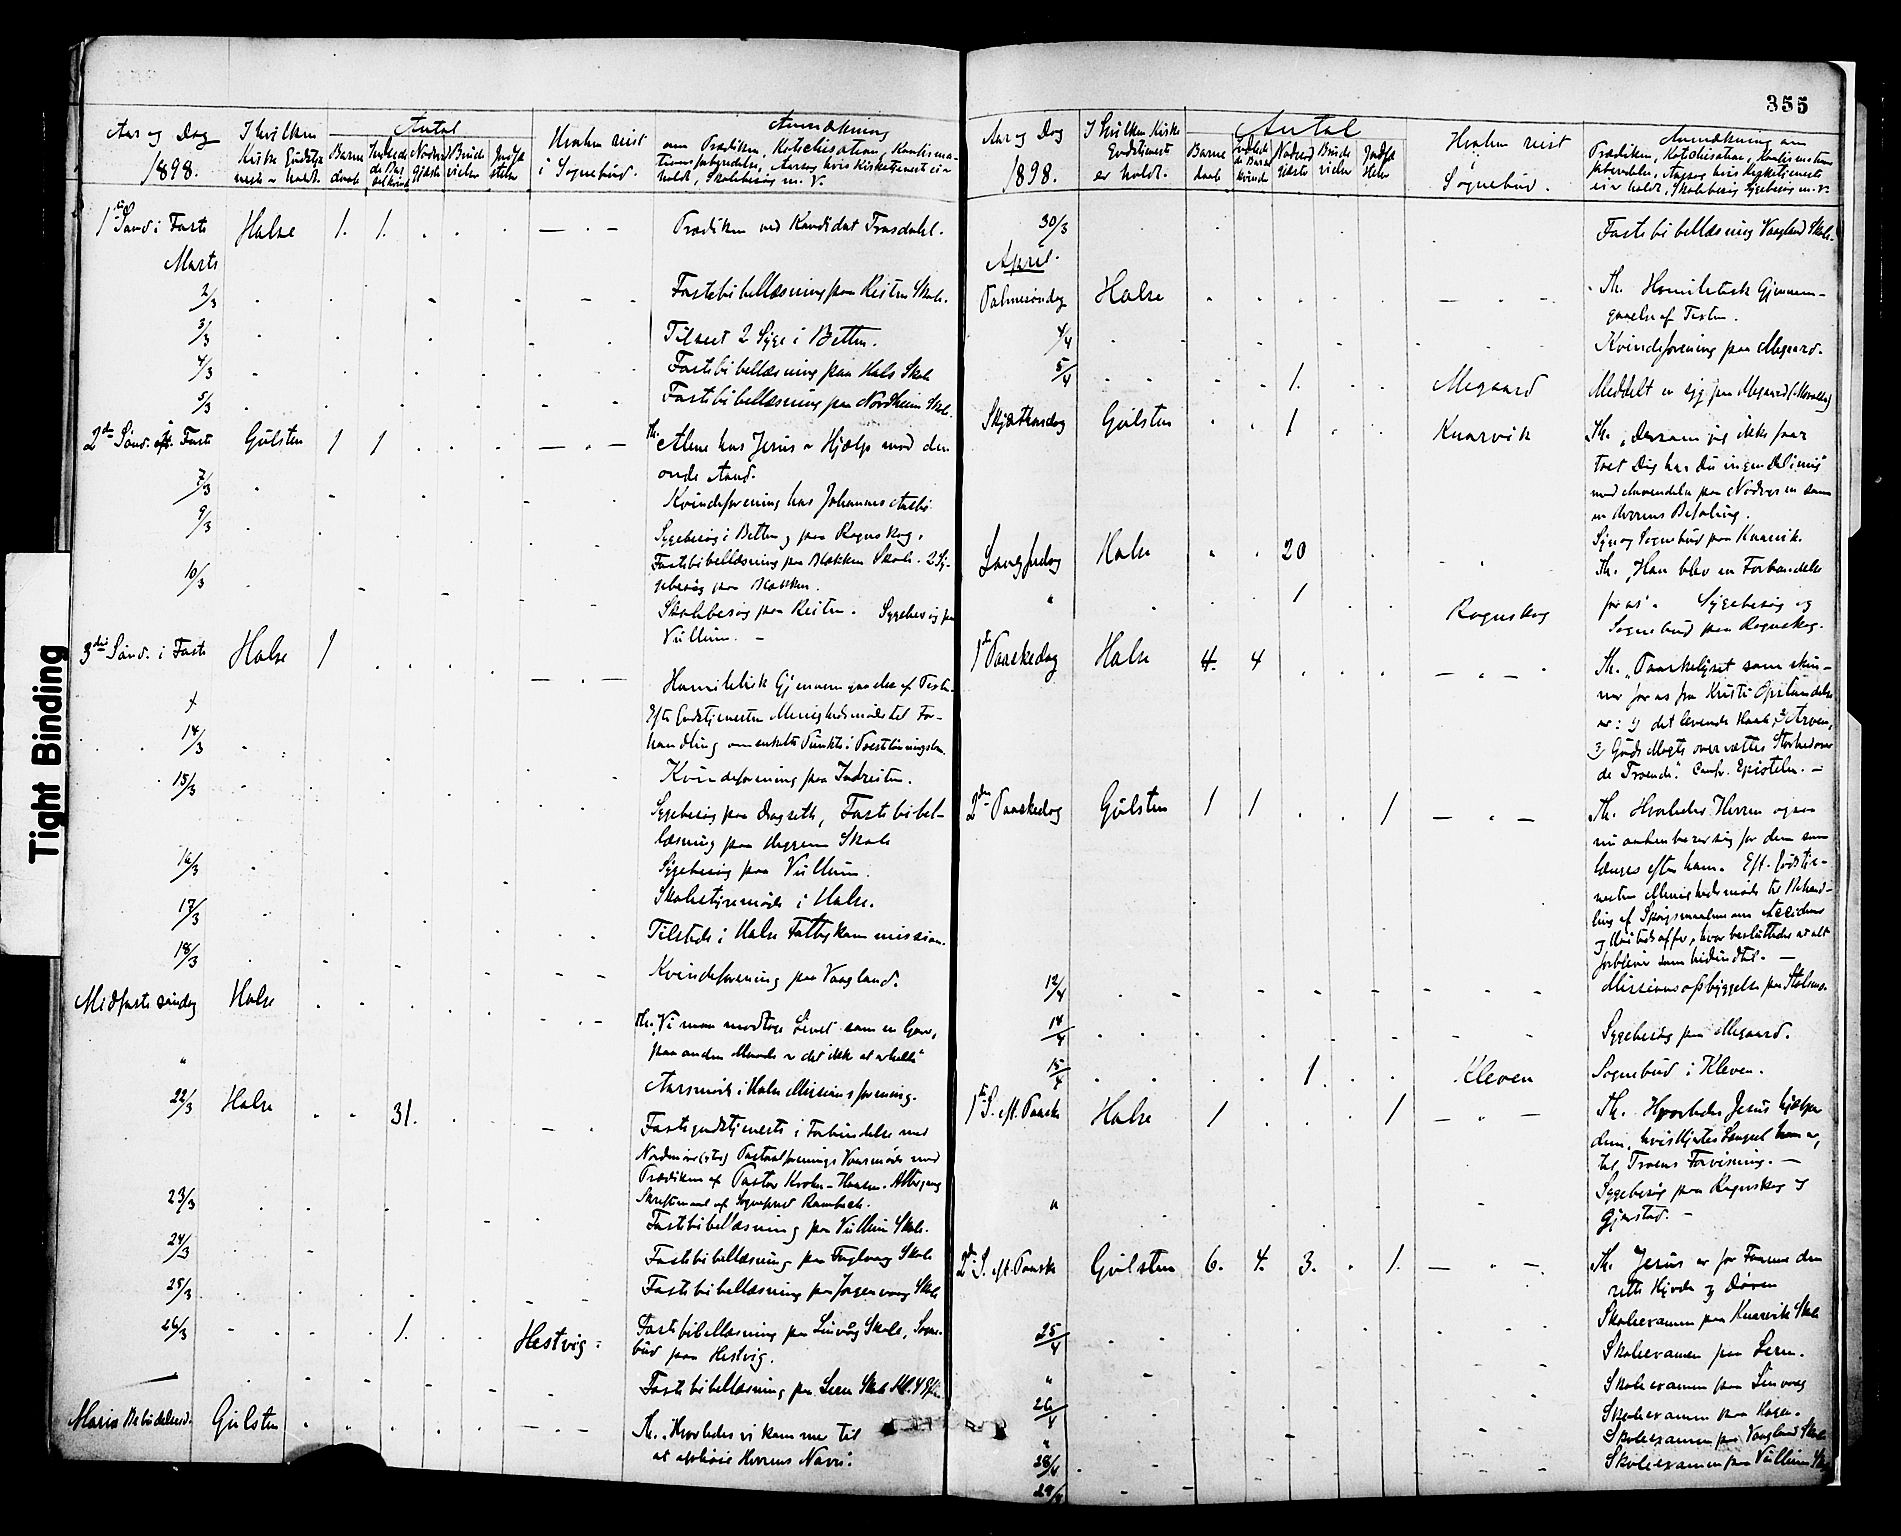 355
Tight Binding
Aar og Dag
1898.
I hvilken
Kirke Gudstje
neste er holdt.
Antal
Barne
daab
Nadver
gjæste
Brude
vielser
Indgj.
Hvorhen reist
i Sognebud.
Anmærkning
om Prædiken, Katechisation, Konfirma-
holdt, Skolebesøg m. v.
1ste Sønd. i Faste Halse 1. 1. Prædiken ved Kandidat
Marts
2/3 Fastebibellæsning paa Reiten Skole.
3/3 Tilseet 2 Syge i Betten.
4/3 Fastebibellæsning paa Hals Skole
5/3 Fastebibellæsning paa Nordheim Skole.
2den Sønd. i Faste Gulsten 1 1 Th. Alene hos Jesus er Hjælp mod den
onde Aand.
7/3 Kvindeforening hos Johannes
9/3 Sygebesøg i Betten og paa Rognskog.
Fastebibellæsning paa Blekken Skole. 2 Sy-
10/3 gebesøg paa Blekken.
Skolebesøg paa Reiten. Sygebesøg paa
Vullum.
3die Sønd. i Faste Halse 1
Homiletisk Gjennemgaaelse af Texten.
Efter Gudstjenesten Menighedsmøde til For-
handling om enkelte Punkter i
14/3 Kvindeforening paa Indreiten.
15/3
Sygebesøg paa Dragseth, Fastebibel-
læsning paa Heggem Skole
16/3 Sygebesøg paa Vullum.
Skolestyremøde i Halse.
17/3 Tilstede i Halse Fattigkommission.
18/3 Kvindeforening paa Vaagland.
Midfastesøndag Halse
Th. Vi maa modtage Livet som en Gave,
paa anden Maade er det ikke at erholde"
" Aarsmøde i Halse Missionsforening.
22/3 Halse 31.
Fastegudstjeneste i Forbindelse med
Nordmøre Pastoralforenings Vaarmøde med
Prædiken af Pastor Krohn-Hansen. Altergang
Skriftemaal af Sogneprest
23/3 Fastebibellæsning paa Vullum Skole.
24/3 Fastebibellæsning paa Fuglvaag Skole
25/3 Fastebibellæsning paa Jørgenvaag Skole
26/3 1. Hestvig Fastebibellæsning paa Linvåg Skole, Sogne-
bud paa Hestvig.
Fastebibellæsning paa Lern Skole Kl. 4 Efm.
Mariæ Bebudelsesd. Gulsten
Th. "Hvorledes vi kommer til
at ophøie Herrens Navn."
Aar og Dag
1898.
I hvilken Kirke
Gudstjeneste
er holdt.
Antal
Barne
daab
Nadver
gjæste
Brude
vielser
Hvorhen reist
Sognebud.
Anmærkning om
Prædiken, Katechisation, Konfirmations
ei er holdt, Skolebesøg Sygebesøg m. v.
30/3 Fastebibellæsning Vaagland Skole.
April.
Palmesøndag Halse Th. Homiletisk Gjennem-
gaaelse af Texten.
4/4 Kvindeforening paa Megaard.
5/4 1. Megaard Meddelt en syg paa Megaard
Skjærthorsdag Gulsten 1 Knarvik Th. "Dersom jeg ikke faar
toet Dig har Du ingen Del i mig"
med Anvendelse paa Nadveren som
en Herrens Befaling.
Syge og Sognebud paa Knarvik.
Langfredag Halse 20 Th. "Han blev en Forbandelse
" 1 Rognskog for os". Sygebesøg og
Sognebud paa Rognskog.
1ste Paaskedag Halse 4. 4 Th. "Paaskelyset som skin-
ner for os fra Kristi Opstandelse
er: 1) det levende Haab, 2) Arven,
3) Guds Magts overvættes Storhed over
de Troende". Confr. Epistelen.
2den Paaskedag Gulsten 1 1 1 Th. Hvorledes Herren ogsaa
nu aabenbarer sig for dem som
længes efter ham. Eft. Gudstje-
nesten Menighedsmøde til Behand-
ling af Spørgsmaalene om Accidens
og Høitidsoffer, hvor besluttedes at alt
forbliver som hidindtil.
12/4 Missionsopbyggelse paa
14/4 Sygebesøg paa Megaard.
15/4 1. Kleven Sognebud i Kleven.
1ste S. eft. Paaske Halse 1 1 Th. Hvorledes Jesus hjælper
dem, hvis Hjertes Længsel han er,
til Troens Forvisning.
" Sygebesøg paa Rognskog og
Gjerstad.
2den S. eft. Paaske Gulsten 6. 4. 3. 1. Th. Jesus er for Faarene den
rette Hyrde og Døren
Skoleexamen paa Knarvik Skole
25/4 Skoleexamen paa Lern.
" Skoleexamen paa Linvaag
26/4 Skoleexamen paa Hagen.
" Skoleexamen paa Vaagland Skole
28/4 Skoleexamen paa Vullum Skole
29/4